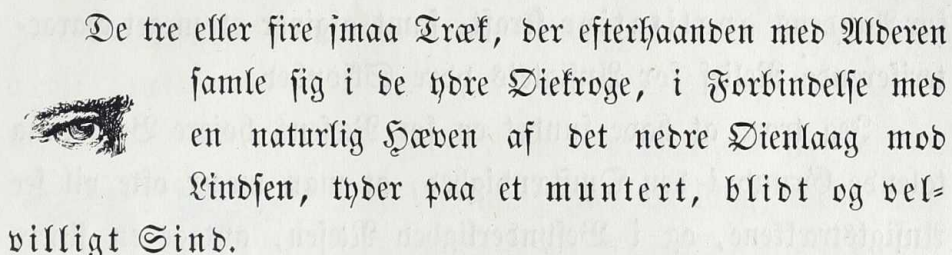 De tre eller fire smaa Træk, der efterhaanden med Alderen
samle sig i de ydre Øiekroge, i Forbindelse med
en naturlig Hæven af det nedre Øienlaag mod
Lindsen, tyder paa et muntert, blidt og vel-
villigt Sind.